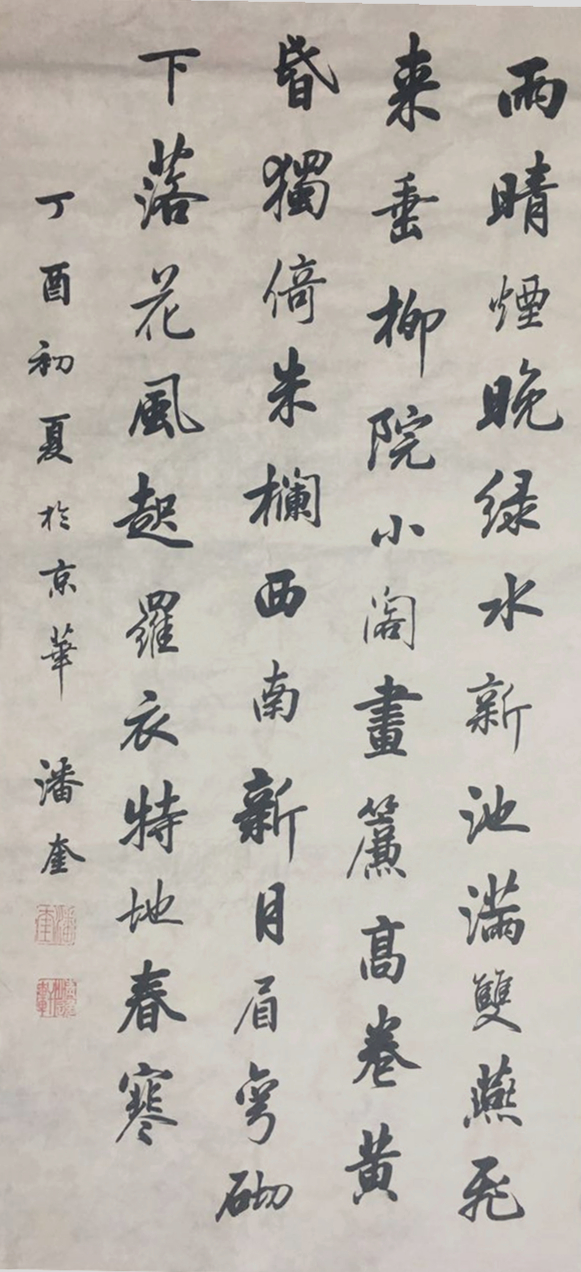 雨晴煙晚綠水新池滿雙燕飛
来垂柳院小閣畫簾高卷黄
昏獨倚朱欄西南新月眉彎砌
下落花風起羅衣特地春寒
丁酉初夏於京華 潘奎